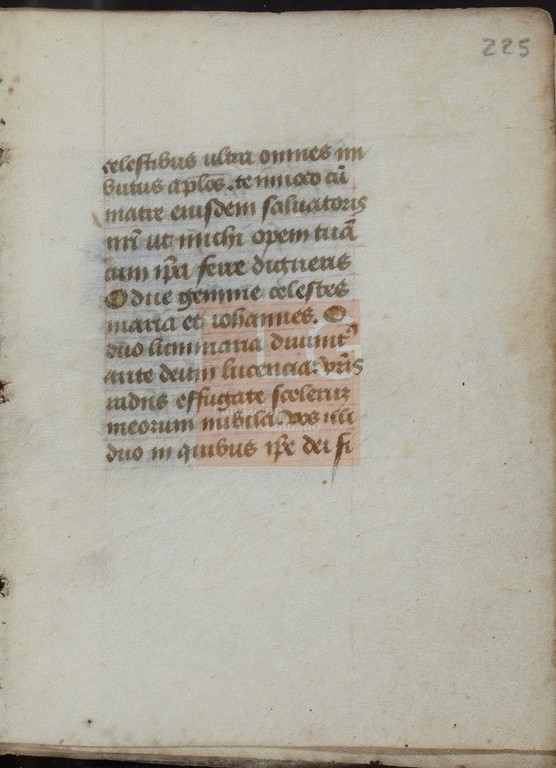 225
celestibus ultra omnes im
butus aplos. te inuoco cū
matre eiusdem saluatoris
nrī ut michi opem tuā
cum ip̄a ferre digneris
O due gemme celestes
maria et iohannes. O
duo luminaria diuinit⁹
ante deum lucencia: vr̄is
radiis effugate scelerum
meorum nubila. Vos illi
duo in quibus ip̄e dei fi